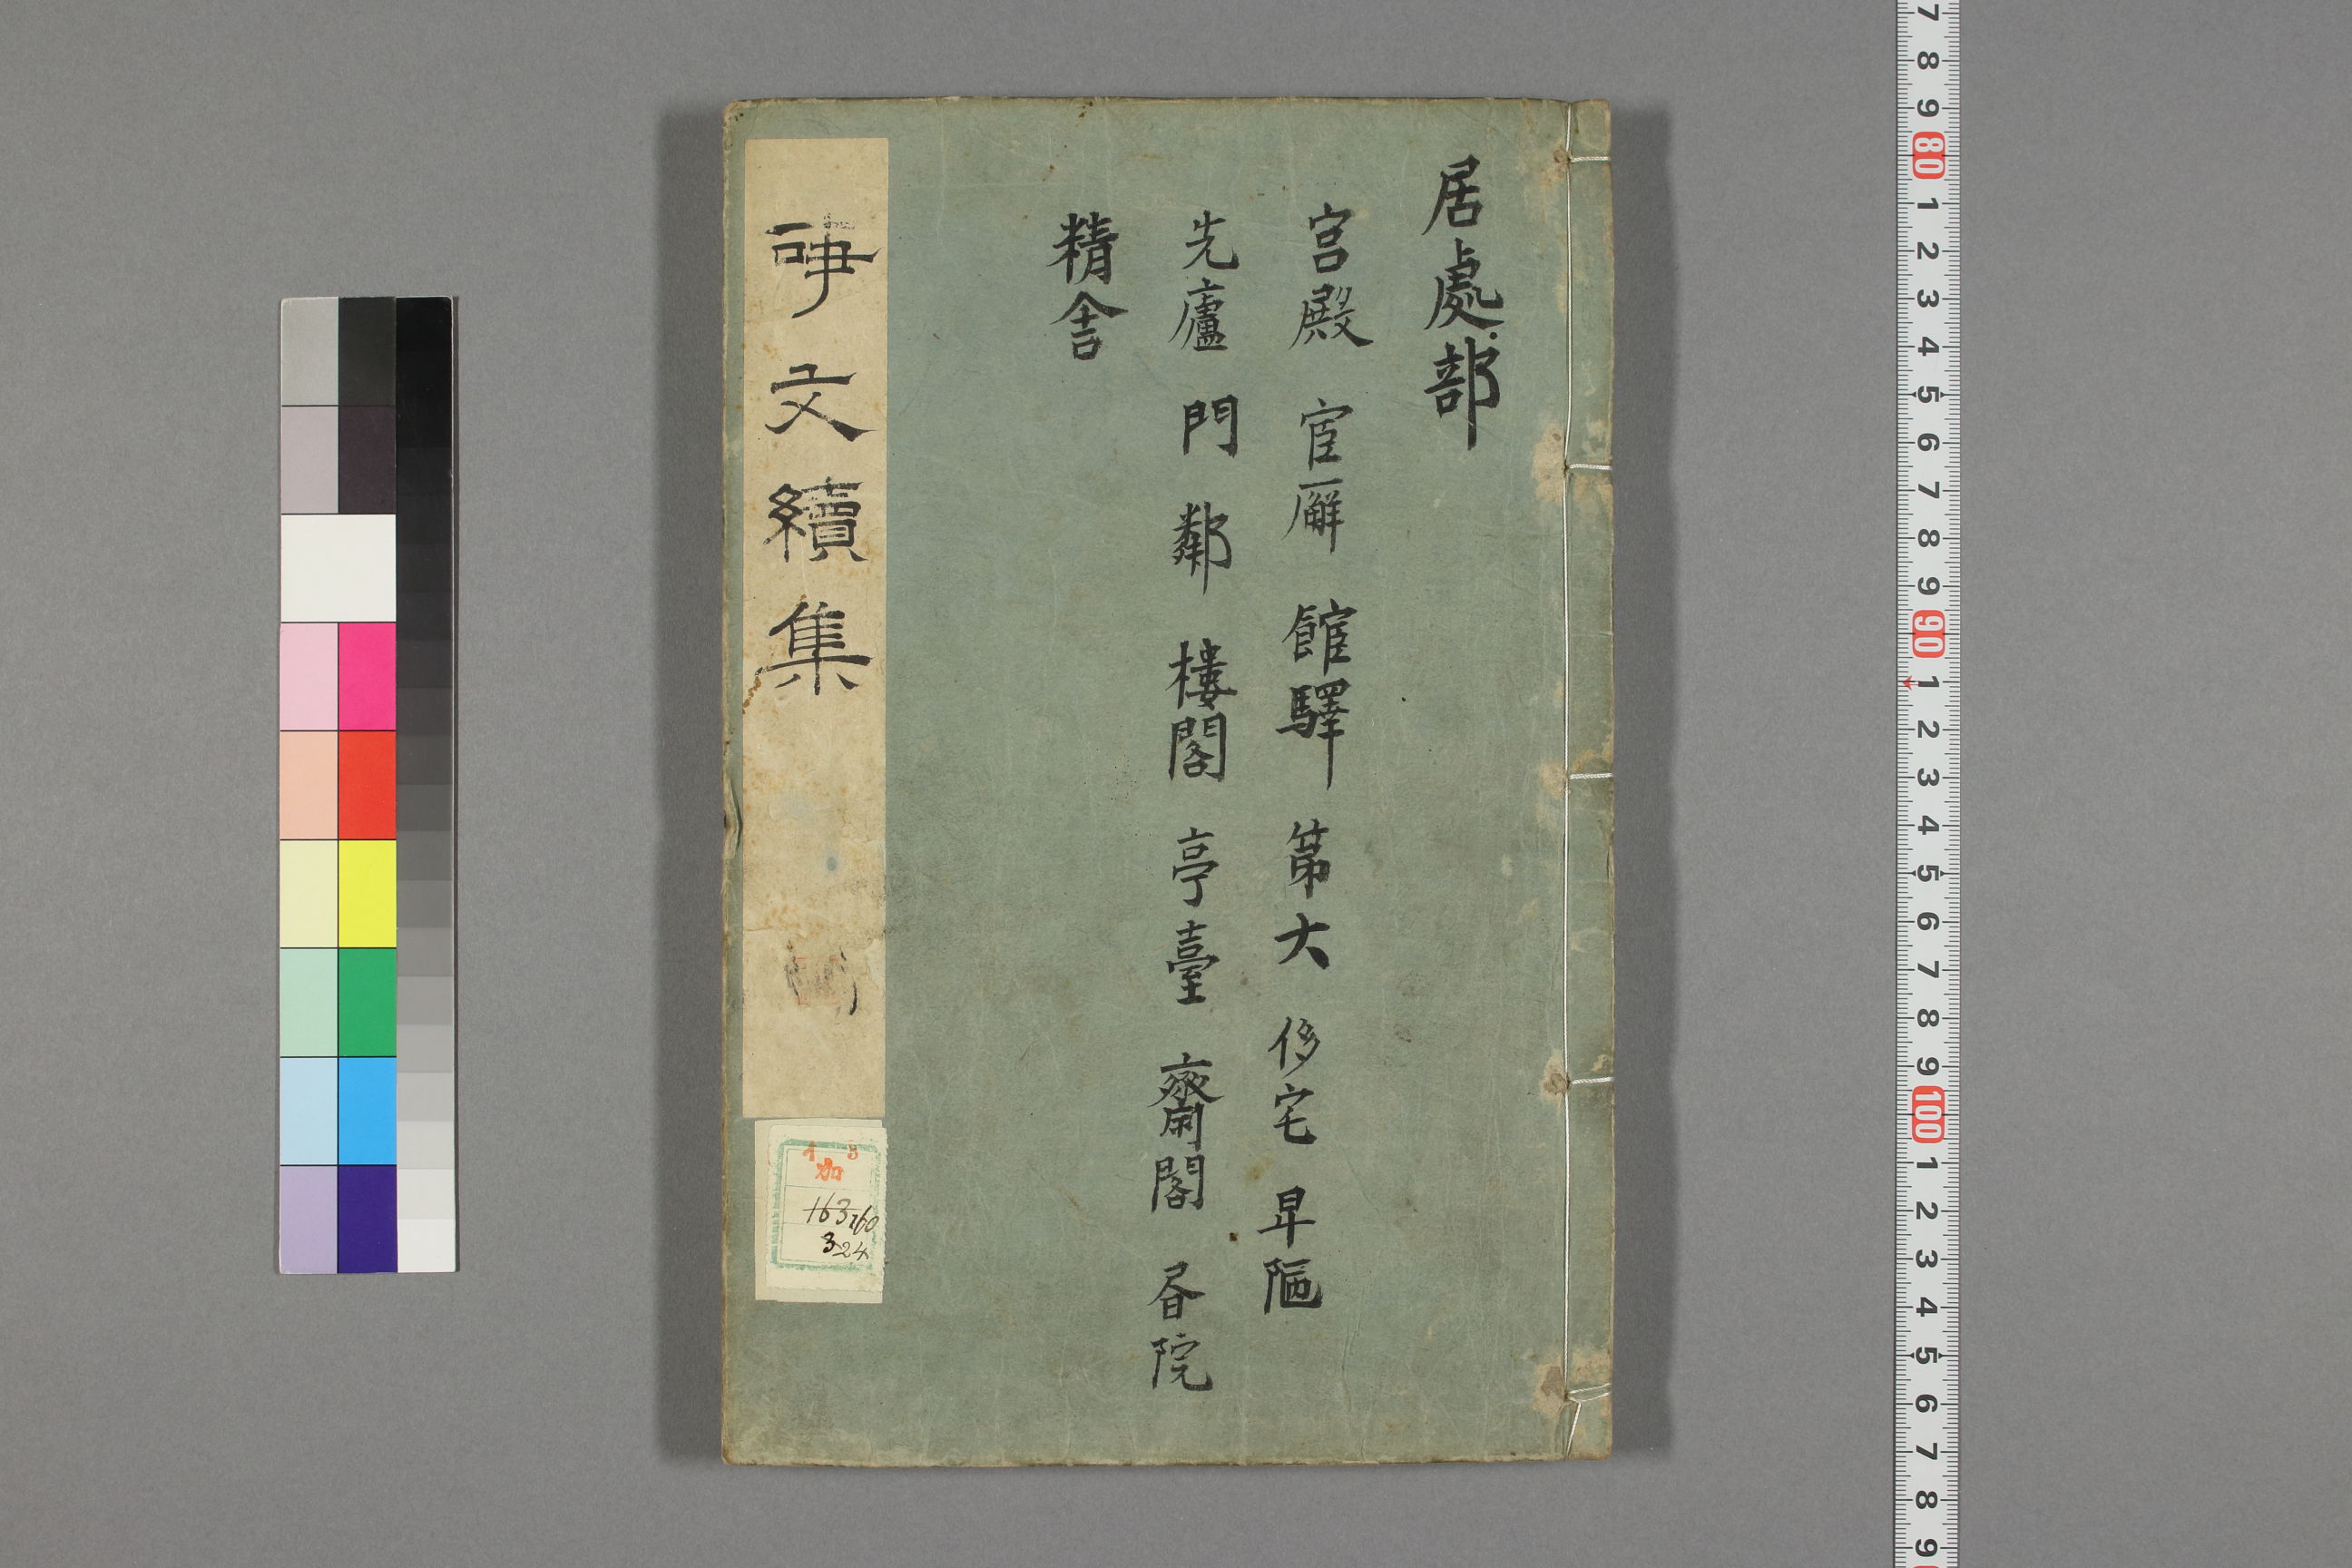 居處部
宮殿 官廨 館驛 第大 侈宅 卑陋
先廬 門 鄰 樓閣 亭臺 齋閣 書院
精舍
事文續集
163
760
324
7 8 9 80 1 2 3 4 5 6 7 8 9 90 1 2 3 4 5 6 7 8 9 100 1 2 3 4 5 6 7 8 9